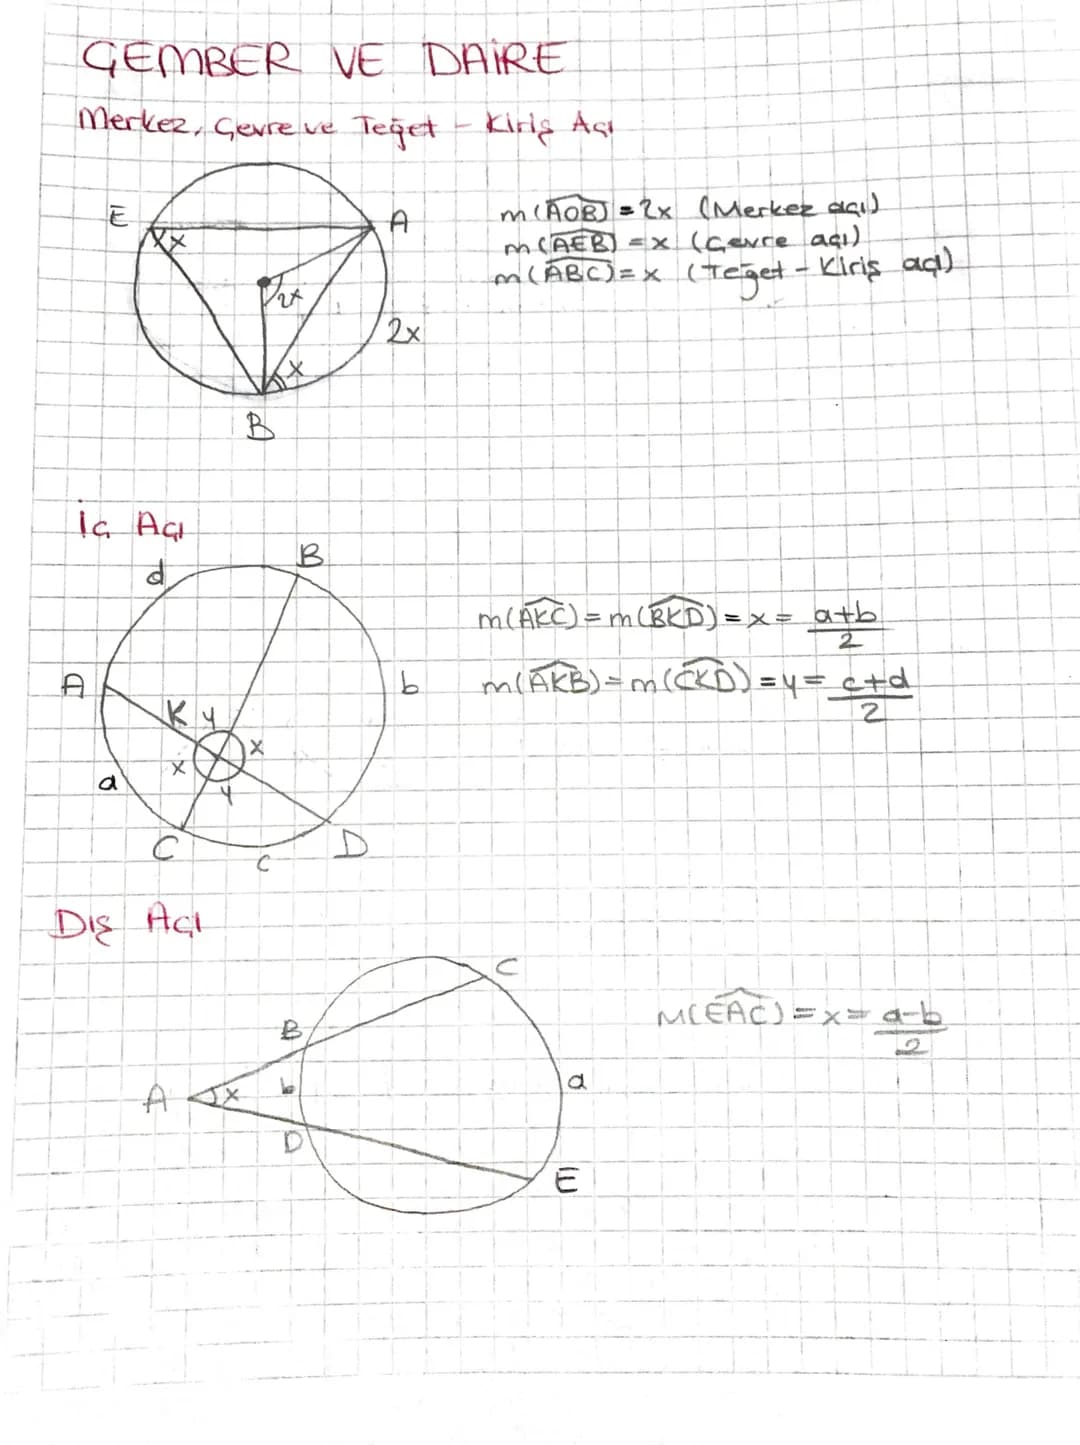 ÇEMBER VE DAİRE
Merkez, Çevre ve Teğet - Kiriş Açı
E
A
x
2x
2x
x
B
m(AOB) = 2x (Merkez açı)
m(AEB) = x (Çevre açı)
m(ABC) = x (Teğet - Kiriş açı)
İç Açı
d
B
A
b
K y
x
x
a
y
C
D
c
m(AKC) = m(BKD) = x = a+b/2
m(AKB) = m(CKD) = y = c+d/2
Dış Açı
C
B
A
x
b
a
D
E
M(EAC) = x = a-b/2